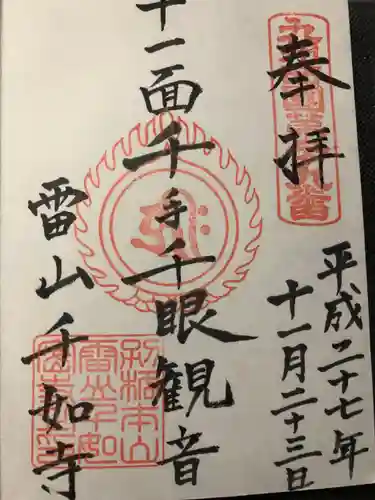 奉拝
平成二十七年
十一月二十三日
十一面千手千眼観音
雷山千如寺